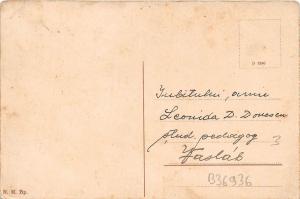 Iubitului, amic
Leonida D. Donescu
stud. pedagog
Vaslui
B36936
N. M. Bp.